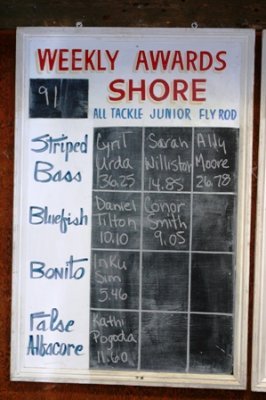 WEEKLY AWARDS
91
SHORE
ALL TACKLE JUNIOR FLY ROD
Striped Bass
Cyril Urda 36.25
Sarah Williston 14.85
Ally Moore 26.78
Bluefish
Daniel Tilton 10.10
Conor Smith 9.05
Bonito
Inku Sim 5.46
False Albacore
Kathi Pogoda 11.60